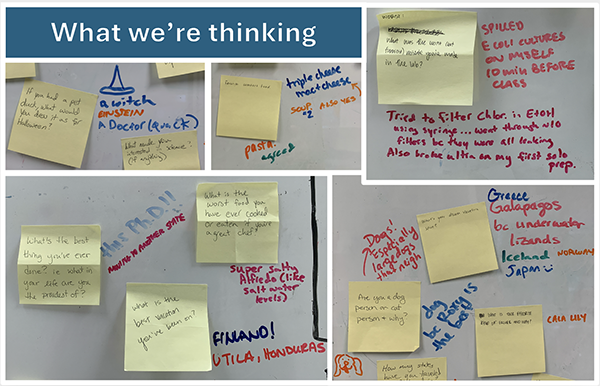 What we're thinking
If you had a pet
duck, what would
you dress it as for
Halloween?
a witch
EINSTEIN
A Doctor (Quack)
What made you
interested in science?
triple cheese
mac + cheese
SOUP ALSO YES
#2
pasta!
agreed
What was the worst
made
in the lab?
SPILLED
E COLI CULTURES
ON MYSELF
10 min BEFORE
CLASS
Tried to filter Chlor. in EtOH
using syringe... went through ~10
filters bc they were all leaking
Also broke ultra on my first solo
prep.
What's the best
thing you've ever
done? ie what in
your life are you
the proudest of?
this Ph.D.!!
MOVING TO ANOTHER STATE
What is the
worst food you
have ever cooked
or eaten if you're
a great chef?
Super Salty
Alfredo (like
salt water
levels)
What is the
best vacation
you've been on?
FINLAND!
UTILA, HONDURAS
Dogs!
Especially
large dogs
that neigh
What's your dream vacation
Greece
Galapagos
bc underwater
lizards
Iceland
NORWAY
Japan
Are you a dog
person or cat
person + why?
dog
bc Roxy is
the best
What is your favorite
CALA LILY
How many states
have you